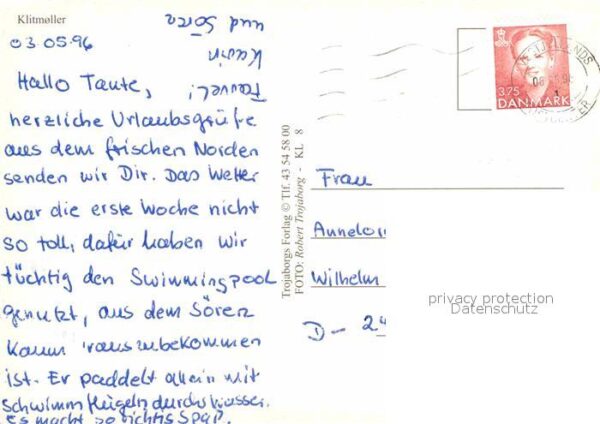 Klitmøller
03 05.96
Hallo Tante,
herzliche Urlaubsgrüße
aus dem frischen Norden
senden wir Dir. Das Wetter
war die erste Woche nicht
so toll, dafür haben wir
tüchtig den Swimmingpool
genutzt, aus dem Sören
kaum 'rauszubekommen
ist. Er paddelt allein mit
Schwimmflügeln durchs Wasser.
es macht so richtig Spaß.
und Sören
Karin
Trojaborgs Forlag © Tlf. 43 54 58 00
FOTO: Robert Trojaborg - KL 8
3.75
DANMARK
Frau
Annelor
Wilhelm
D- 24
privacy protection
Datenschutz